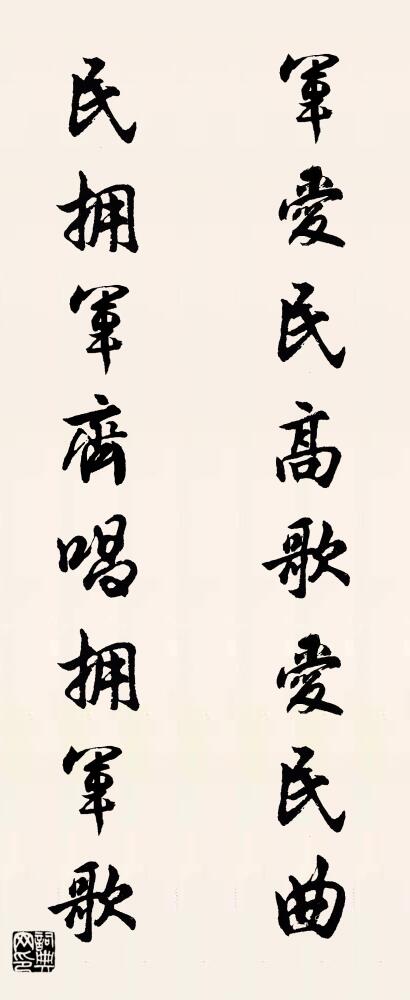 軍愛民高歌愛民曲
民拥軍齊唱拥軍歌
詞典网印